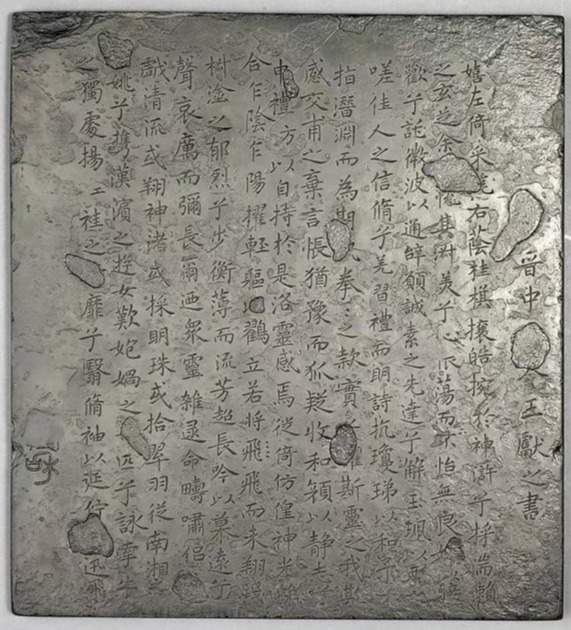 晉中令王獻之書
嬉左倚采旄右蔭桂棋攘皓捥於神滸兮採湍瀨
之玄芝余悅其淑美兮心振蕩而不怡無良
歡兮託微波以通辭願誠素之先達兮解玉珮以要
嗟佳人之信脩兮羌習禮而明詩抗瓊珶以和予
指潛淵而為期拳〻之款實懼斯靈之我欺
感交甫之棄言悵猶豫而狐疑收和顏以靜志兮
申禮方以自持於是洛靈感焉徙倚仿偟神光離
合乍陰乍陽擢輕軀以鶴立若將飛飛而未翔踐
椒塗之郁烈兮步衡薄而流芳超長吟以慕遠兮
聲哀厲而彌長爾迺眾靈雜遝命疇嘯侶
戲清流或翔神渚或採明珠或拾翠羽從南湘之
二姚兮攜漢濱之遊女歎匏媧之匹兮詠牽牛
之獨處揚袿之靡兮翳脩袖以延佇迅飛